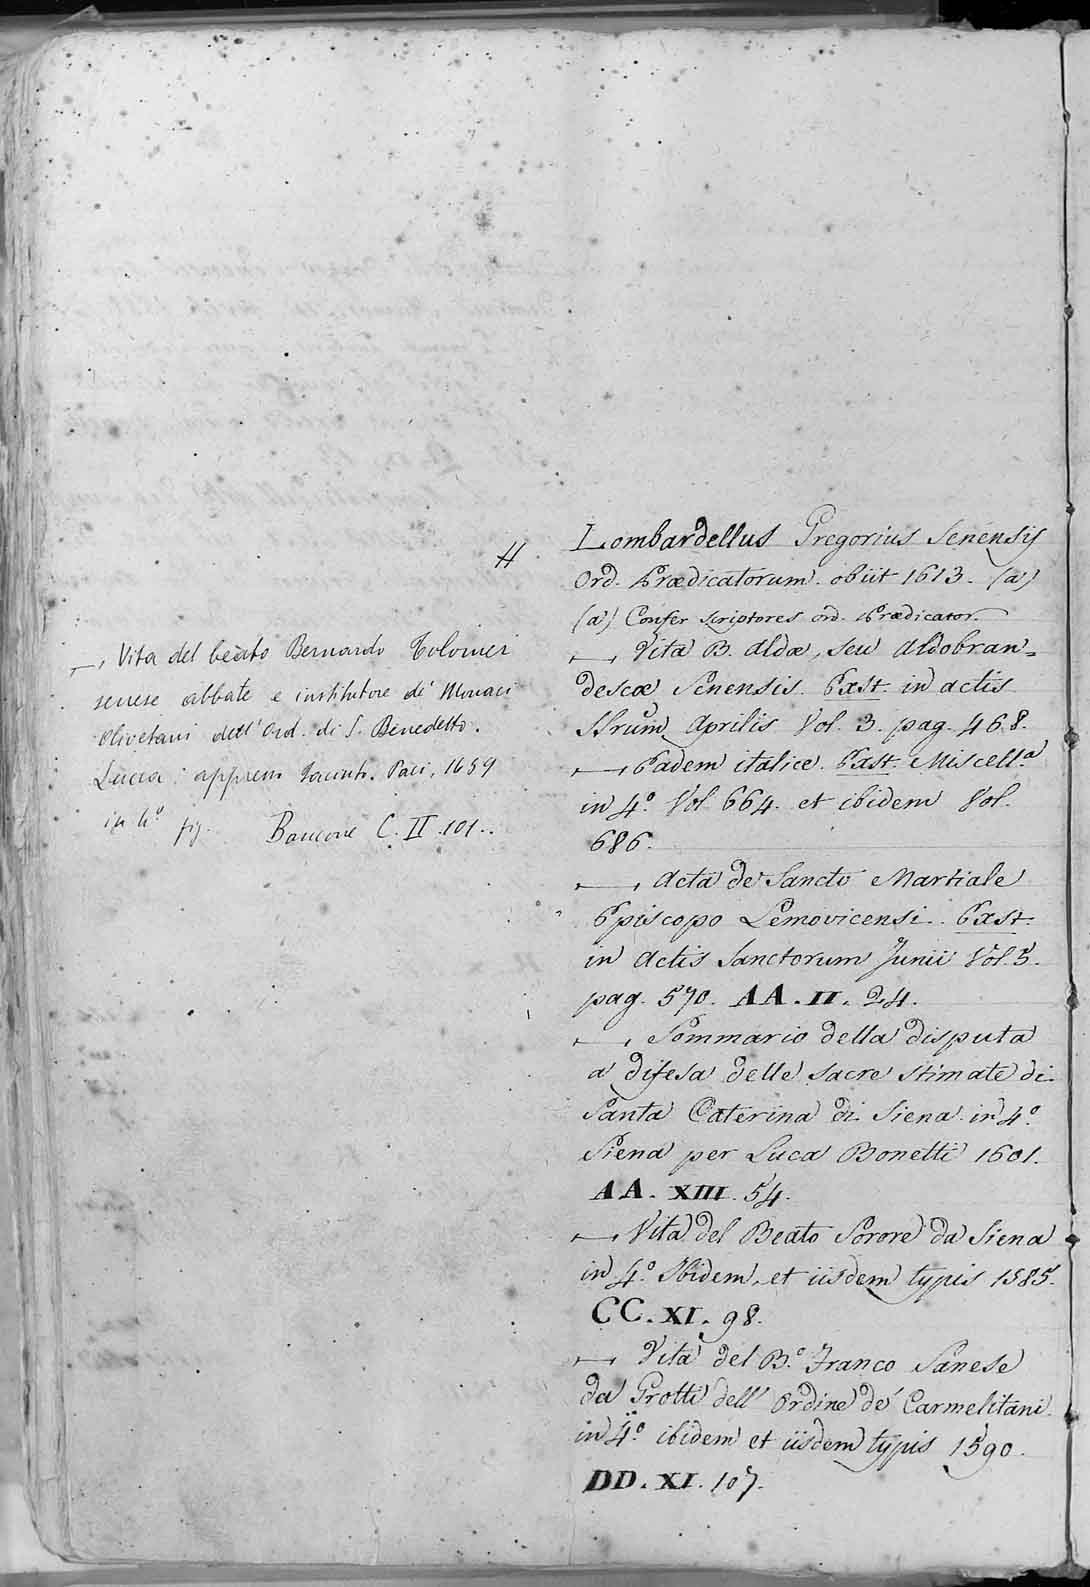 H
—, Vita del beato Bernardo Tolomei
senese abbate e institutore di Monaci
Olivetani dell' Ord. di S. Benedetto.
Lucca: appresso Iacinto Paci, 1659
in 4.º fig. Bancone C. II. 101..
Lombardellus Gregorius Senensis
Ord. Prædicatorum. obiit 1613. (a)
(a) Confer Scriptores Ord. Prædicator.
—, Vita B. Aldæ, seu Aldobran=
descæ Senensis. Exst. in actis
SSrum Aprilis Vol. 3. pag. 468.
—, Eadem italice. Exst. Miscell.ª
in 4.º Vol 664. et ibidem Vol.
686.
—, Acta de Sancto Martiale
Episcopo Lemovicensi. Exst.
in Actis Sanctorum Junii Vol. 5.
pag. 570. AA. II. 24.
—, Sommario della disputa
a difesa delle sacre stimate di
Santa Caterina di Siena in 4.º
Siena per Luca Bonetti 1601.
AA. XIII. 54.
—, Vita del Beato Sorore da Siena
in 4.º Ibidem, et iisdem typis 1585.
CC. XI. 98.
—, Vita del B.º Franco Sanese
da Grotti dell' Ordine de' Carmelitani
in 4.º ibidem et iisdem typis 1590.
DD. XI. 107.